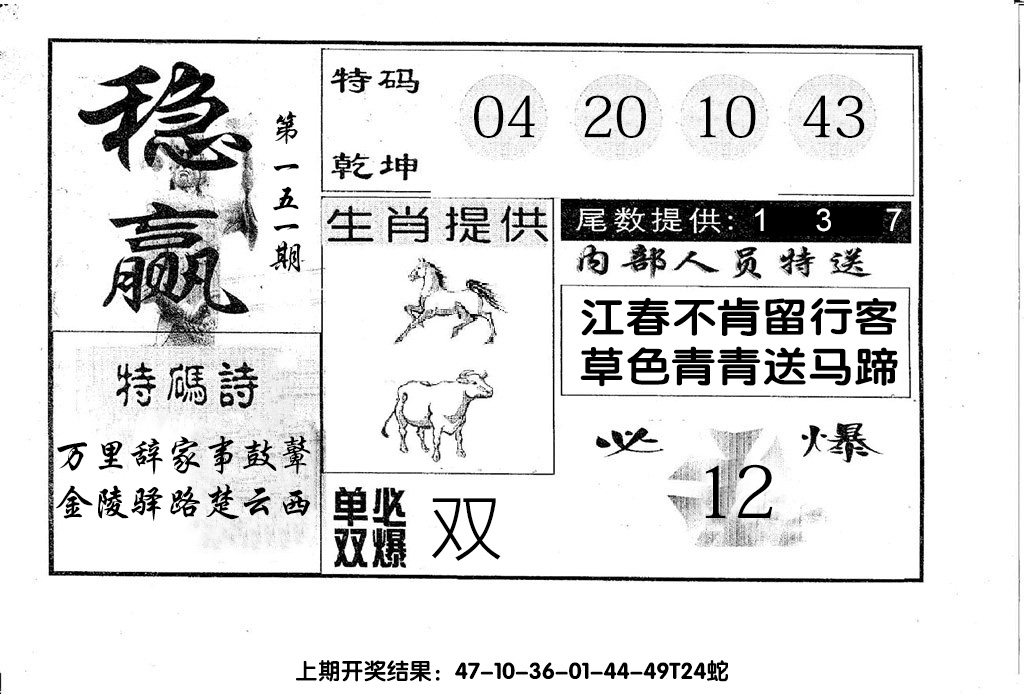 稳赢
第一五一期
特码
乾坤
04 20 10 43
生肖提供
尾数提供: 1 3 7
内部人员特送
江春不肯留行客
草色青青送马蹄
特碼詩
万里辞家事鼓鼙
金陵驿路楚云西
必爆
12
单双必爆
双
上期开奖结果：47-10-36-01-44-49T24蛇